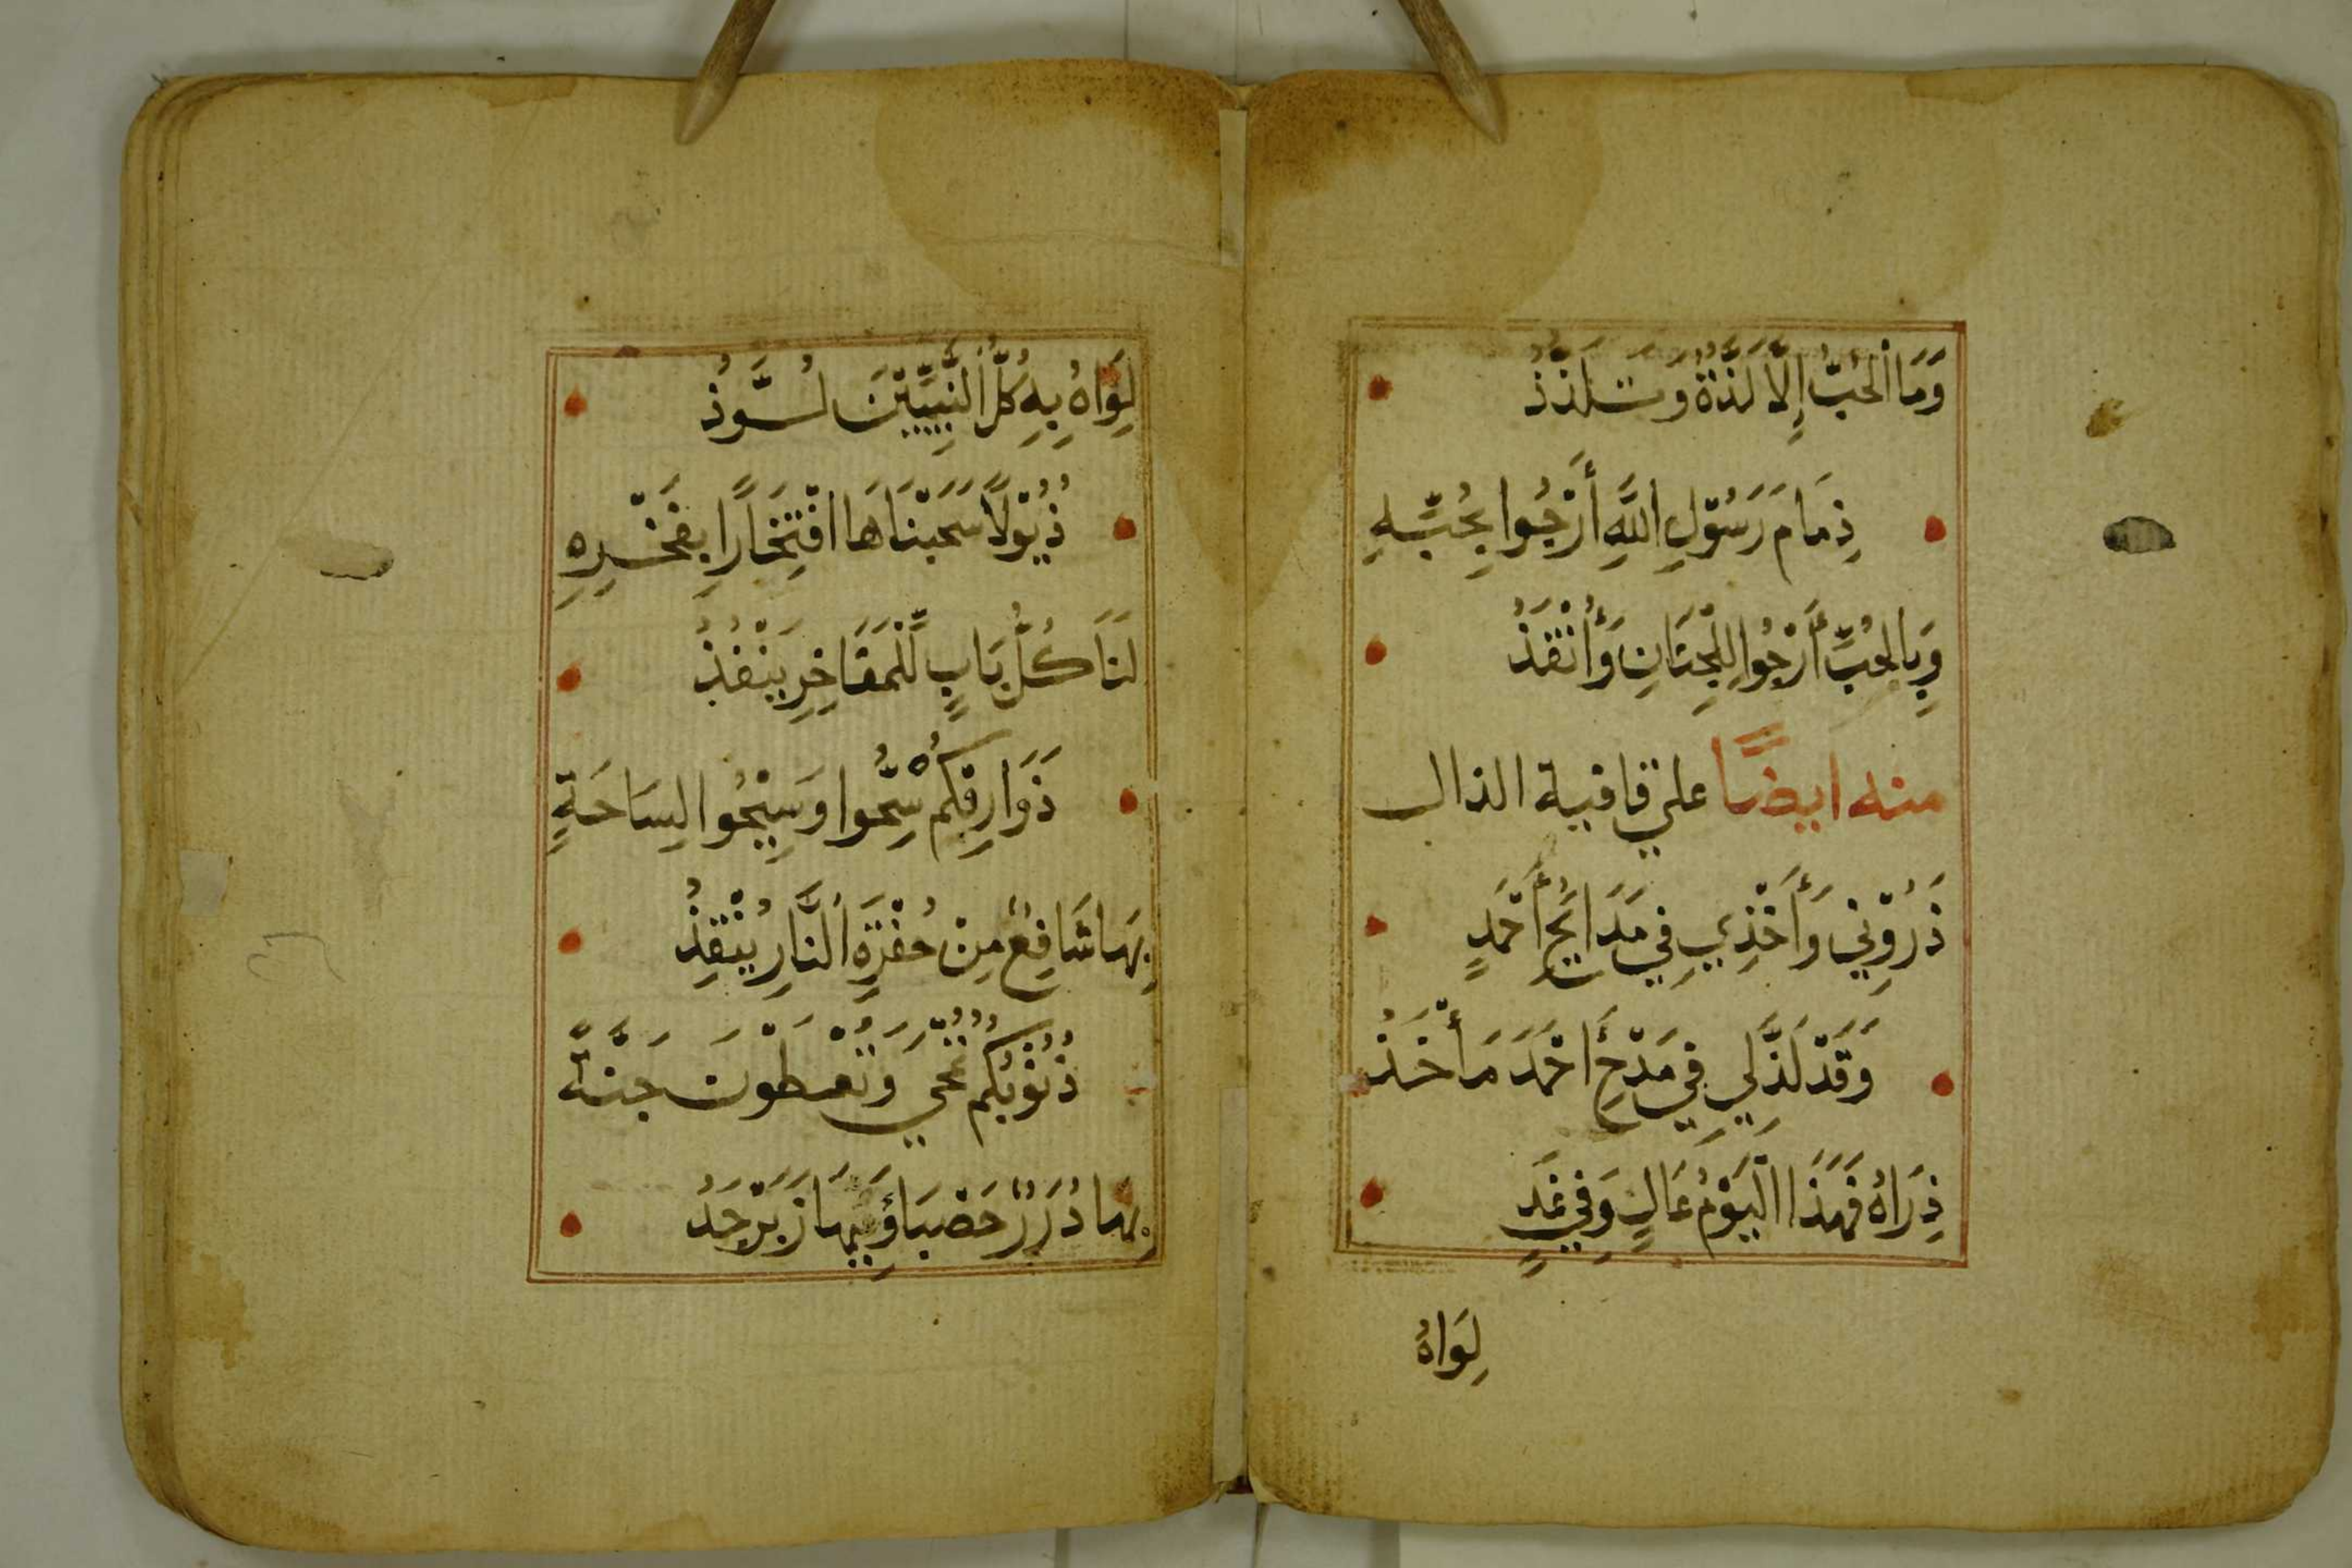 وَمَا الْحُبُّ إِلَّا لَذَّةٌ وَتَلَذُّذُ
ذِمَامَ رَسُوْلِ اللَّهِ أَرْجُوا بِحُبِّهِ
وَبِالْحُبِّ أَرْجُوا لِلْجِنَانِ وَأُنْقَذُ
منه ايضًا علي قافية الذال
ذَرُوْنِي وَأَخْذِي فِي مَدَائِحِ أَحْمَدٍ
وَقَدْ لَذَّ لِي فِي مَدْحِ أَحْمَدَ مَأْخَذُ
ذِرَاهُ فَهَذَا الْيَوْمُ عَالٍ وَفِي غَدٍ
لِوَاهُ
لِوَاهُ بِهِ كُلُّ النَّبِيِّيْنَ لُوَّذُ
ذُيُوْلًا سَحَبْنَاهَا افْتِخَارًا بِفَخْرِهِ
لَنَا كُلُّ بَابٍ لِلْمَفَاخِرِ يَنْفُذُ
ذَوَارِفَكُمْ سِحُّوا وَسِيْحُوا لِسَاحَةٍ
بِهَا شَافِعٌ مِنْ حُفْرَةِ النَّارِ يُنْقِذُ
ذُنُوْبُكُمُ تُمْحَي وَتُعْطَوْنَ جَنَّةً
بِهَا دُرَرٌ حَصْبَاؤُ زَبَرْجَدُ